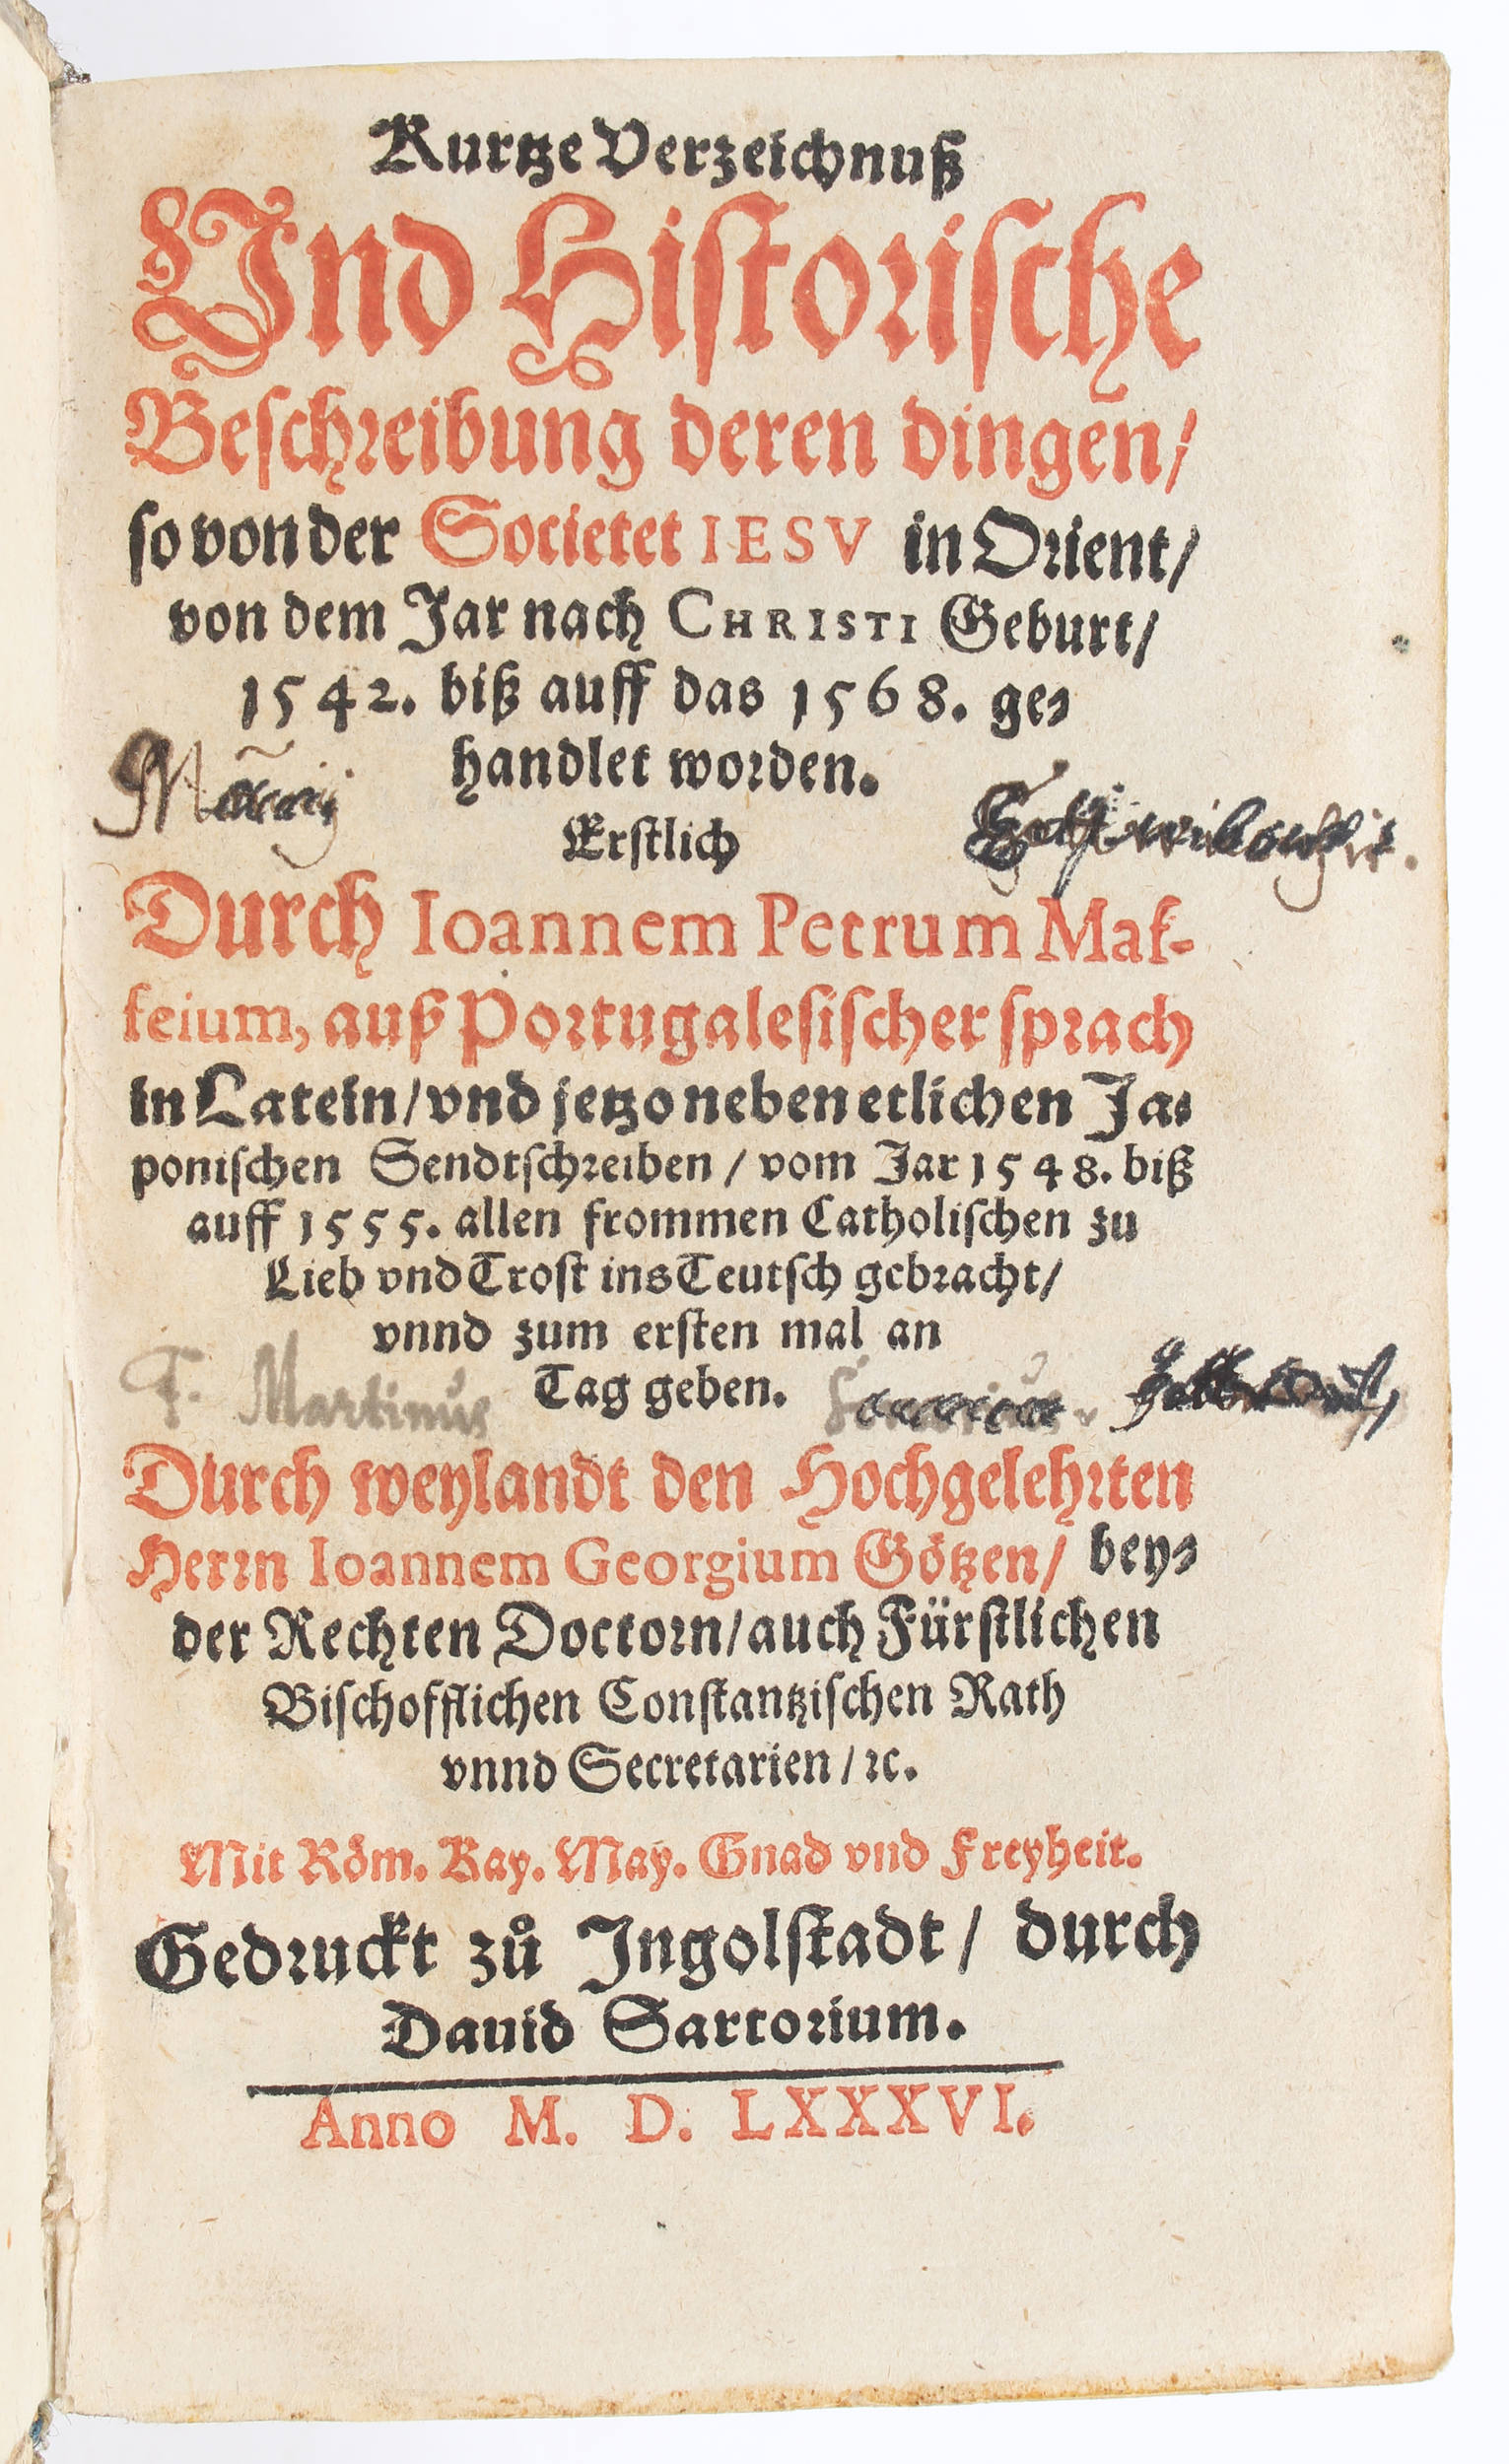 Kurtze Verzeichnuß
Vnd Historische
Beschreibung deren dingen/
so von der Societet IESV in Orient/
von dem Jar nach CHRISTI Geburt/
1542. biß auff das 1568. ge-
handlet worden.
Erstlich
Durch Ioannem Petrum Maf-
feium, auß Portugalesischer sprach
in Latein/ vnd jetzo neben etlichen Ja-
ponischen Sendtschreiben/ vom Jar 1548. biß
auff 1555. allen frommen Catholischen zu
Lieb vnd Trost ins Teutsch gebracht/
vnnd zum ersten mal an
Tag geben.
F. Martinus
Durch weylandt den Hochgelehrten
Herrn Ioannem Georgium Götzen/ bey-
der Rechten Doctorn/ auch Fürstlichen
Bischofflichen Constantzischen Rath
vnnd Secretarien/ ꝛc.
Mit Röm. Kay. May. Gnad vnd Freyheit.
Gedruckt zů Ingolstadt/ durch
Dauid Sartorium.
Anno M. D. LXXXVI.